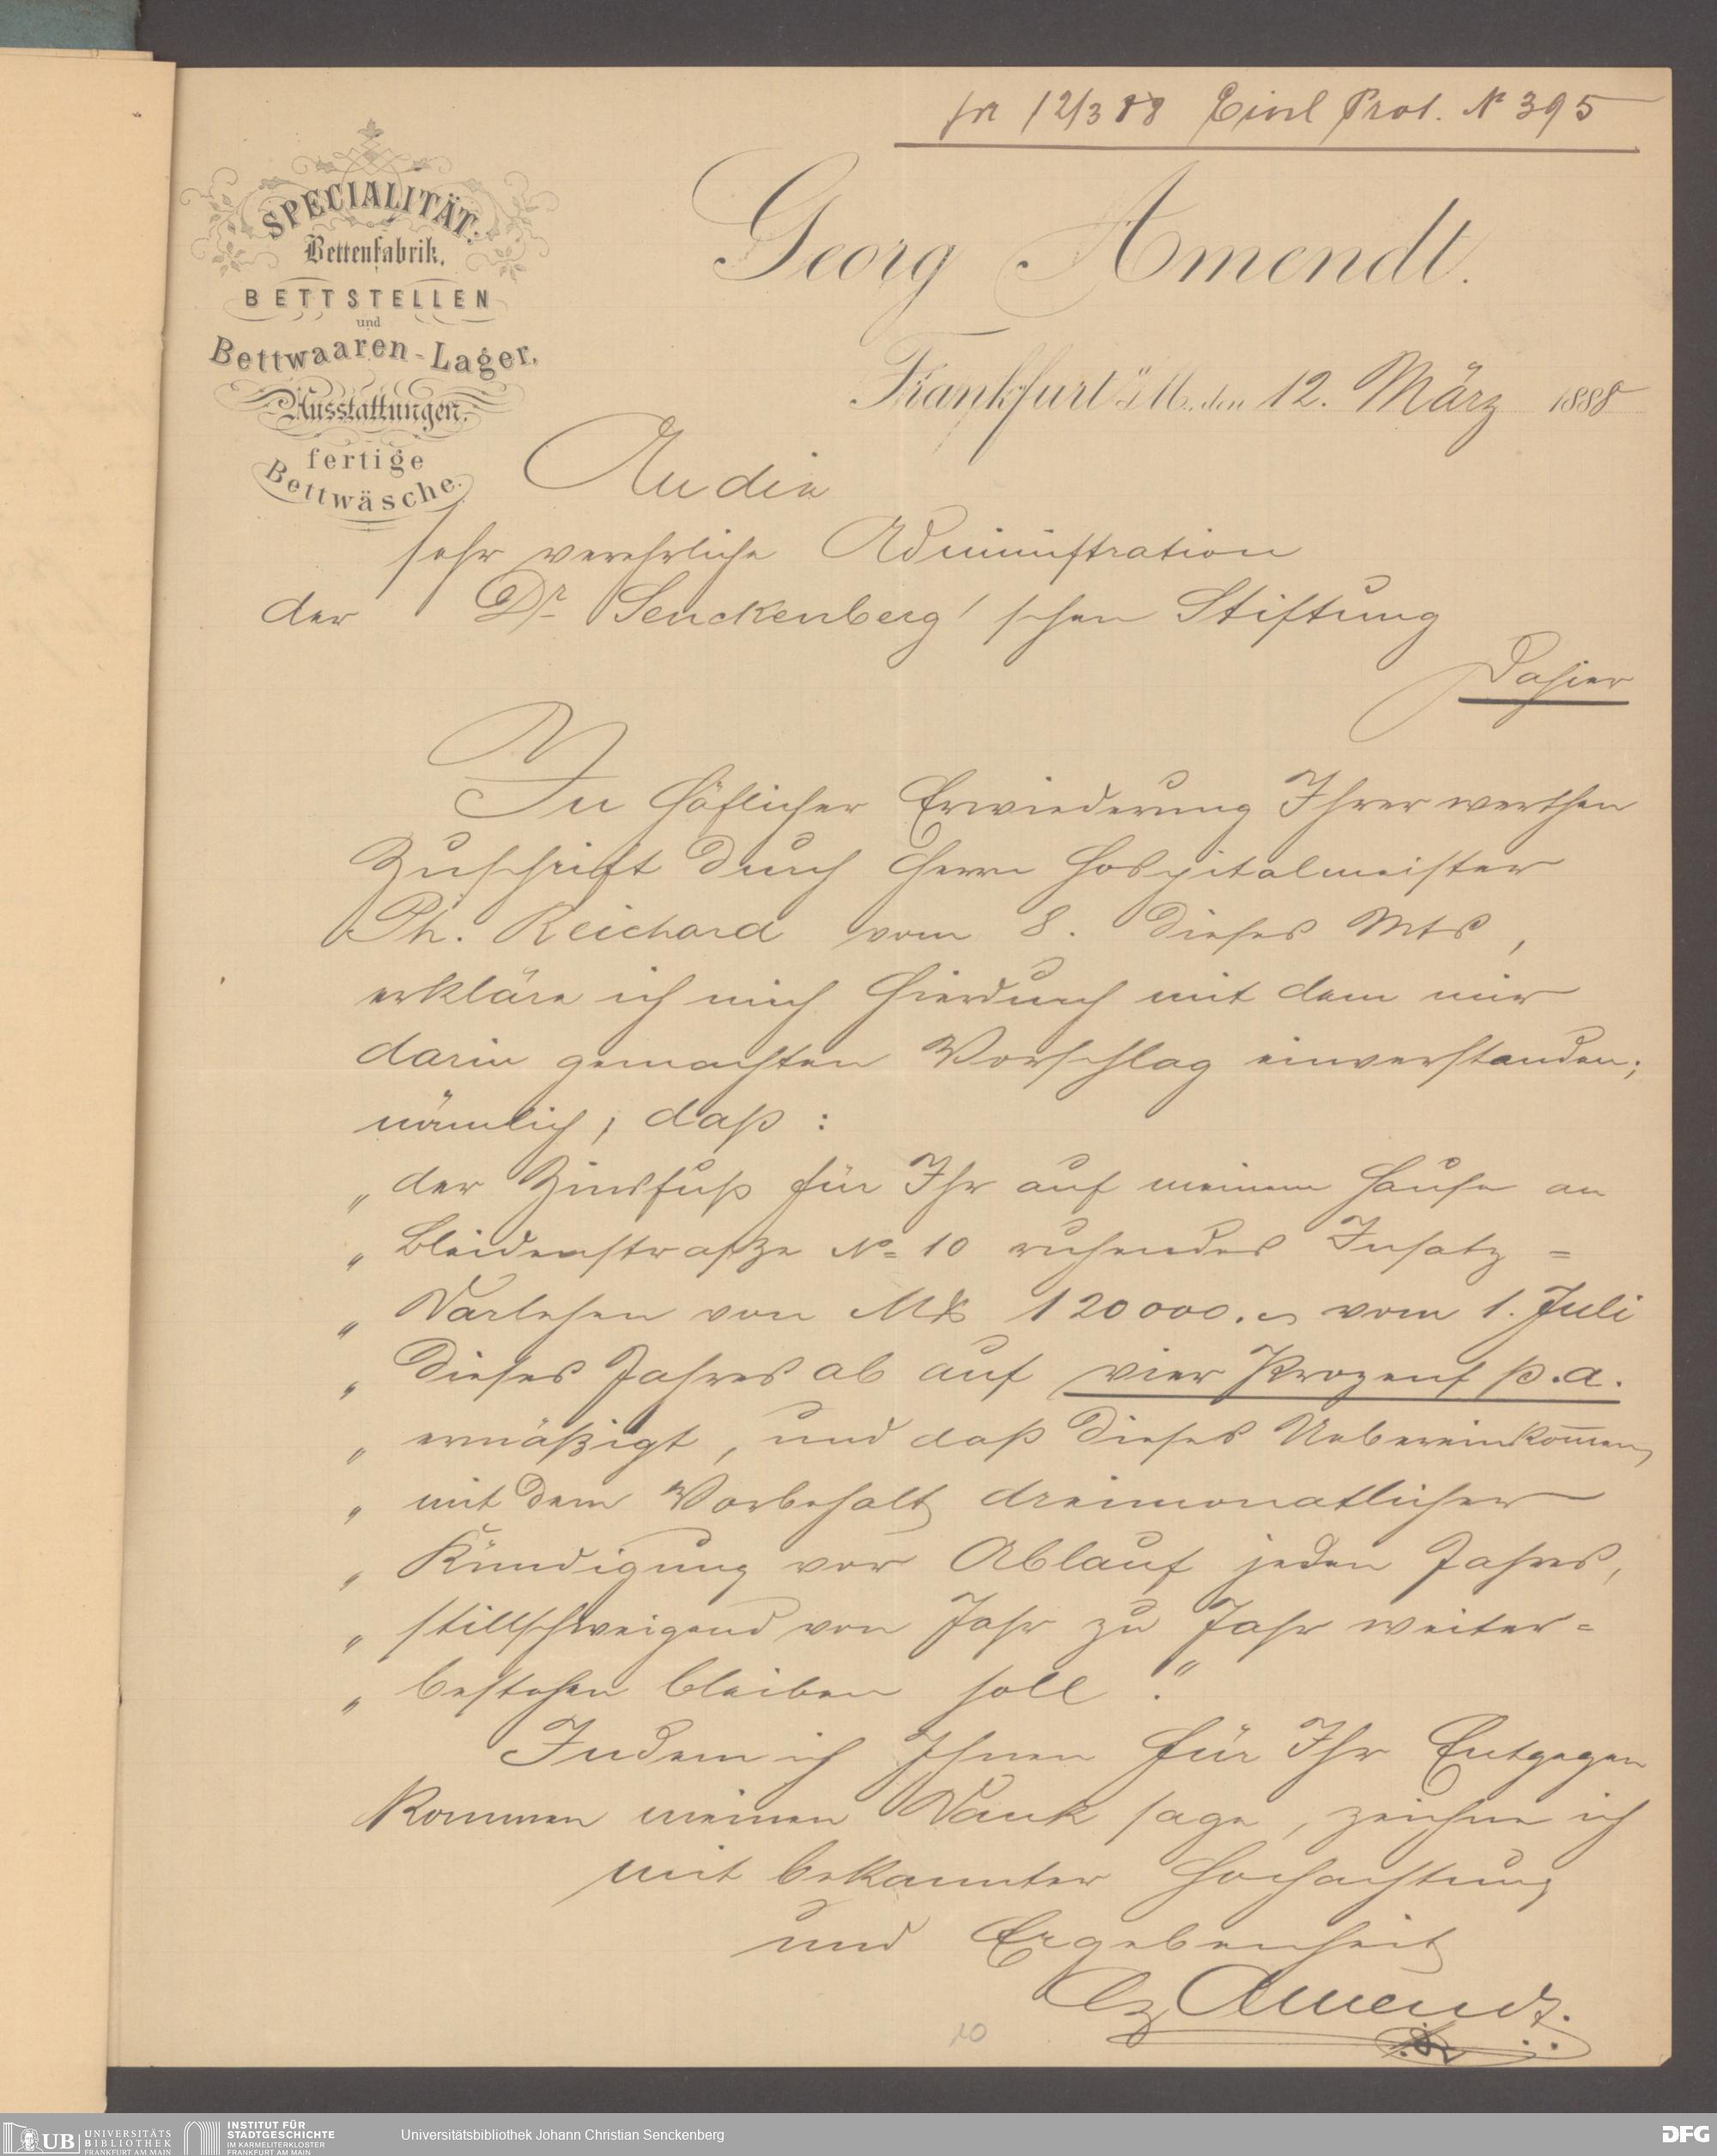 pr 12/3 88 Einl Prot. № 395
SPECIALITÄT:
Bettenfabrik,
BETTSTELLEN
und
Bettwaaren-Lager,
Ausstattungen,
fertige
Bettwäsche.
Georg Amendt.
Frankfurt a/M., den 12. März 1888
An die
sehr verehrliche Administration
der Dr. Senckenberg'schen Stiftung
Dahier
In höflicher Erwiederung Ihrer werthen
Zuschrift durch Herrn Hospitalmeister
Ph. Reichard vom 8. dieses Mts,
erkläre ich mich hierdurch mit dem mir
darin gemachten Vorschlag einverstanden;
nämlich, daß:
„ der Zinsfuß für Ihr auf meinem Hause an
„ Bleidenstraße No 10 ruhendes Insatz=
„ Darlehen von Mk 120000.– vom 1. Juli
„ dieses Jahres ab auf vier Prozent p.a.
„ ermäßigt, und daß dieses Uebereinkom̅en,
„ mit dem Vorbehalt dreimonatlicher
„ Kündigung vor Ablauf jeden Jahres,
„ stillschweigend von Jahr zu Jahr weiter=
„ bestehen bleiben soll."
Indem ich Ihnen für Ihr Entgegen
kommen meinen Dank sage, zeichne ich
mit bekannter Hochachtung
und Ergebenheit
Gg Amendt.
10
UB UNIVERSITÄTS
BIBLIOTHEK
FRANKFURT AM MAIN
INSTITUT FÜR
STADTGESCHICHTE
IM KARMELITERKLOSTER
FRANKFURT AM MAIN
Universitätsbibliothek Johann Christian Senckenberg
DFG